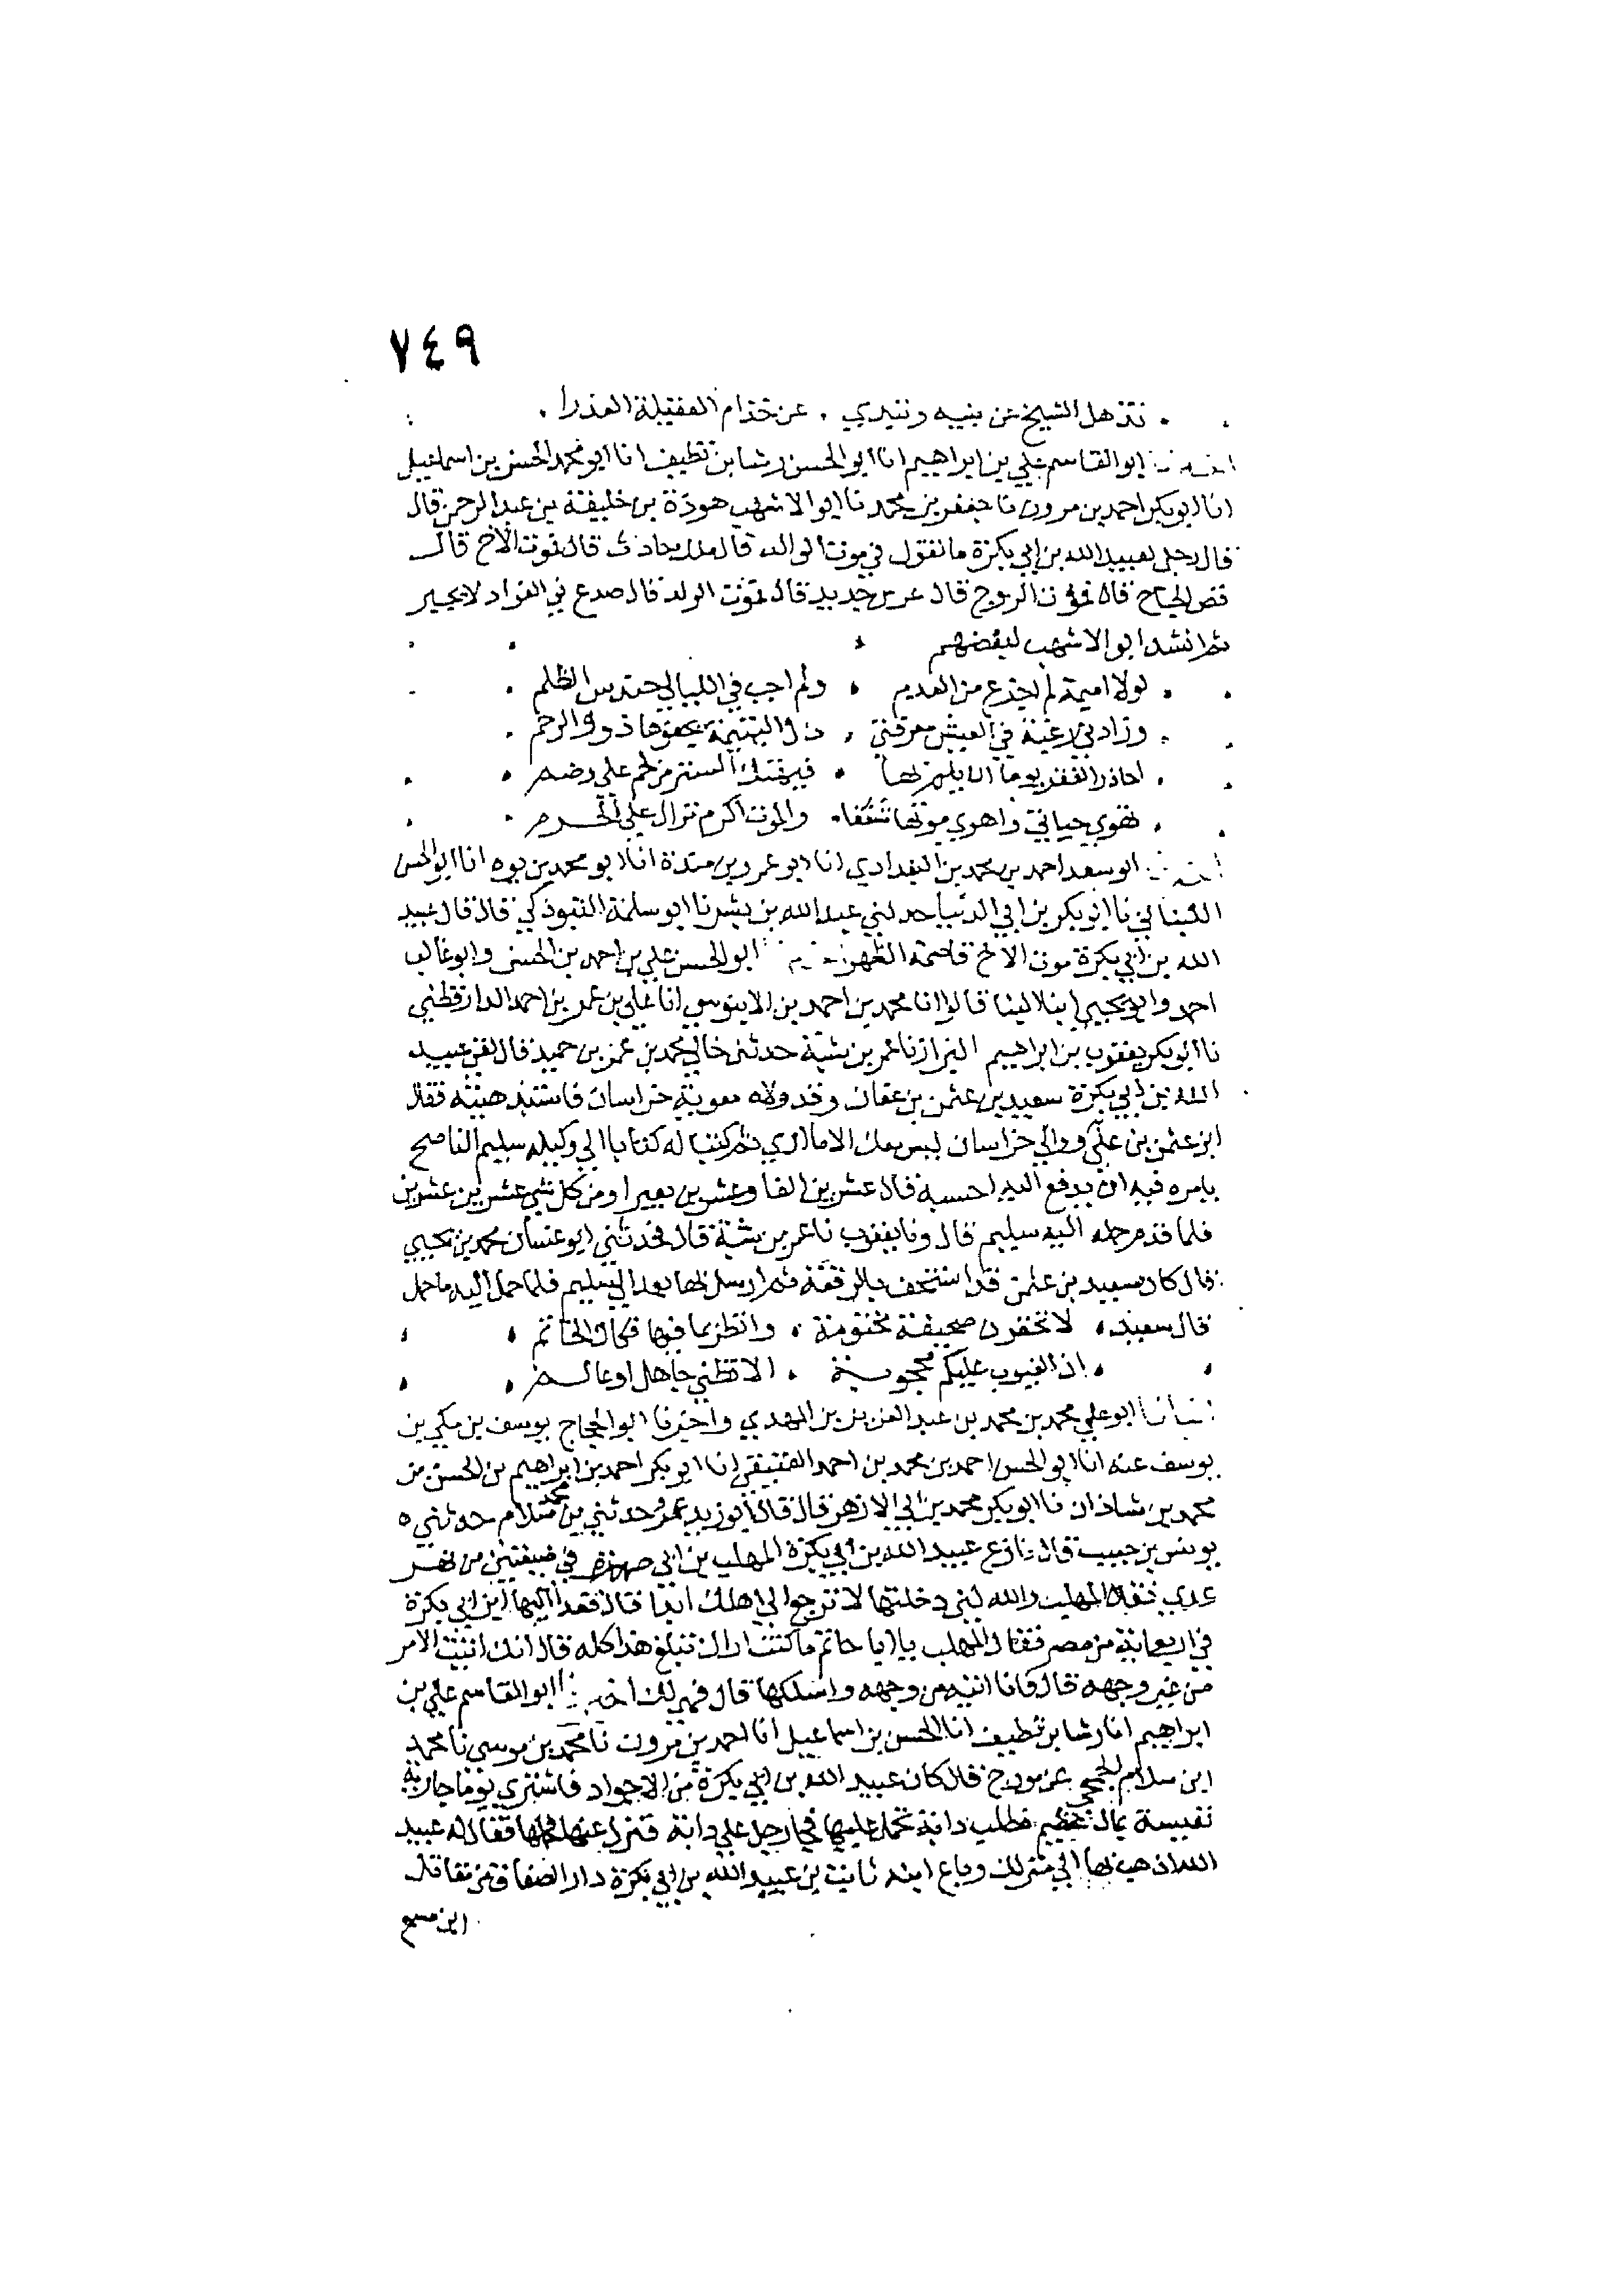 ٧٤٩
تذهل الشيخ عن بنيه وتبدي . عن خدام العقيلة العذرا .
ابو القاسم علي بن ابراهيم انا ابو الحسن رشا بن نظيف انا ابو محمد الحسن بن اسماعيل
انا ابو بكر احمد بن مرون نا جعفر بن محمد نا ابو الاشهب هوذة بن خليفة بن عبد الرحمن قال
قال رجل لعبيد الله بن ابي بكرة ما تقول في موت الوالد قال ملك حادث قال فموت الاخ قال
قص الجناح قال فموت الزوج قال عرس جديد قال فموت الولد قال صدع في الفواد لا يجبر
ثم انشد ابو الاشهب لبعضهم
لولا اميمة لم اجزع من العدم . ولم اجب في الليالي حندس الظلم
وزادني رغبة في العيش معرفتي . ذل اليتيمة يجفوها ذوو الرحم
احاذر الفقر يوما ان يلم بها . فيهتك الستر من لحم على وضم
تهوى حياتي واهوى موتها شفقا . والموت اكرم نزال على الحرم
ابو سعد احمد بن محمد بن البغدادي انا ابو عمرو بن مندة انا ابو محمد بن يوه انا ابو الحسن
اللنباني نا ابو بكر بن ابي الدنيا حدثني عبد الله بن بشر نا ابو سلمة التبوذكي قال قال عبيد
الله بن ابي بكرة موت الاخ قاصمة الظهر ابو الحسن علي بن احمد بن الحسن وابو غالب
احمد وابو يحيى ابنا البنا قالوا انا محمد بن احمد بن الابنوسي انا علي بن عمر بن احمد الدارقطني
نا ابو بكر يعقوب بن ابراهيم البزاز نا عمر بن شبة حدثني خالي محمد بن عمر بن حميد قال لقي عبيد
الله بن ابي بكرة سعيد بن عثمن بن عفان وقد ولاه معوية خراسان هيئته فقال
ابن عثمن بن عفن ووالي خراسان ليس معك الا ما ارى ثم كتب له كتابا الى وكيله سليم الناصح
يامره فيه ان يدفع اليه احسبه قال عشرين الفا وعشرين بعيرا ومن كل شي عشرين عشرين
فلما قدم حمله اليه سليم قال ونا يعقوب نا عمر بن شبة قال فحدثني ابو غسان محمد بن يحيى
قال كان سعيد بن عثمن قد استخف بالرقعة ثم ارسل بها بعد الى سليم فلما حمل اليه ما حمل
قال سعيد . لا تحقرن صحيفة مختومة . وانظر بما فيها فكاك الخاتم
ان الغيوب عليكم محجوبة . الا تظني جاهل او عالم
انبانا ابو علي محمد بن محمد بن عبد العزيز بن المهدي واخبرنا ابو الحجاج يوسف بن مكي بن
يوسف عنه انا ابو الحسن احمد بن محمد بن احمد العتيقي انا ابو بكر احمد بن ابراهيم بن الحسن بن
محمد بن شاذان نا ابو بكر محمد بن ابي الازهر قال قال ابو زيد عمر وحدثني محمد بن سلام حدثني
يونس بن حبيب قال نازع عبيد الله بن ابي بكرة المهلب بن ابي صفرة في ضيعتين من نهر
عدي فقال المهلب والله لئن دخلتها لا ترجع الى اهلك ابدا قال فغدا اليها ابن ابي بكرة
في اربعمائة من مضر فقال المهلب يا ابا حاتم ما كنت ارى ان تبلغ هذا كله قال انك اتيت الامر
من غير وجهه قال فانا اتيه من وجهه واسلكها قال فهي لك ابو القاسم علي بن
ابراهيم انا رشا بن نظيف انا الحسن بن اسماعيل انا احمد بن مروان نا محمد بن موسى نا محمد
ابن سلام الجمحي عن مورج قال كان عبيد الله بن ابي بكرة من الاجواد فاشترى يوما جارية
نفيسة بمال عظيم فطلب دابة تحمل عليها فجا رجل على دابة فنزل عنها فحملها فقال له عبيد
الله اذهب بها الى منزلك وباع ابنه ثابت بن عبيد الله بن ابي بكرة دار الصفاق من مقاتل
ابن مسمع